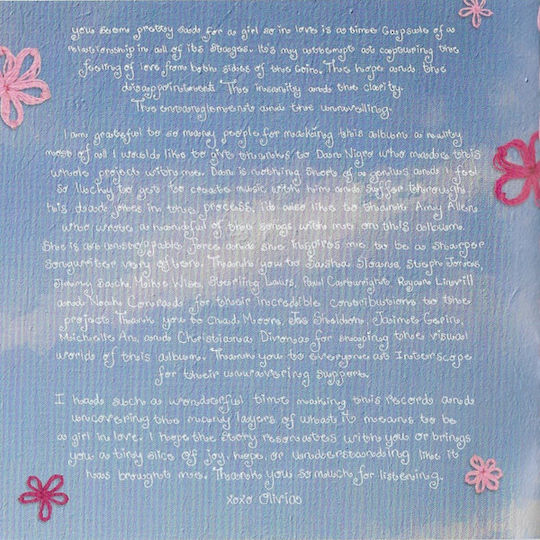 you seem pretty sad for a girl so in love is a time capsule of a
relationship in all of its stages. It's my attempt at capturing the
feeling of love from both sides of the coin. The hope and the
disappointment. The insanity and the clarity.
The entanglement and the unraveling.
I am grateful to so many people for making this album a reality
most of all I would like to give thanks to Dan Nigro who made this
whole project with me. Dan is nothing short of a genius and I feel
so lucky to get to create music with him and suffer through
his dad jokes in the process. id also like to thank Amy Allen
who wrote a handful of the songs with me on this album.
She is an unstoppable force and she inspires me to be a sharper
songwriter very often. Thank you to Sasha Sloane, Steph Jones,
Jimmy Mike Sterling Laws, Paul Cartwright, Ryan Linvill
and Noah Conrad for their incredible contributions to the
project. Thank you to Chad Moore, Jaime
Michelle An, and Christiana Divona for shaping the visual
world of this album. Thank you to everyone at Interscope
for their unwavering support.
I had such a wonderful time making this record and
uncovering the many layers of what it means to be
a girl in love. I hope the story resonates with you or brings
you a tiny slice of joy, hope, or understanding like it
has brought me. Thank you so much for listening.
xoxo Olivia